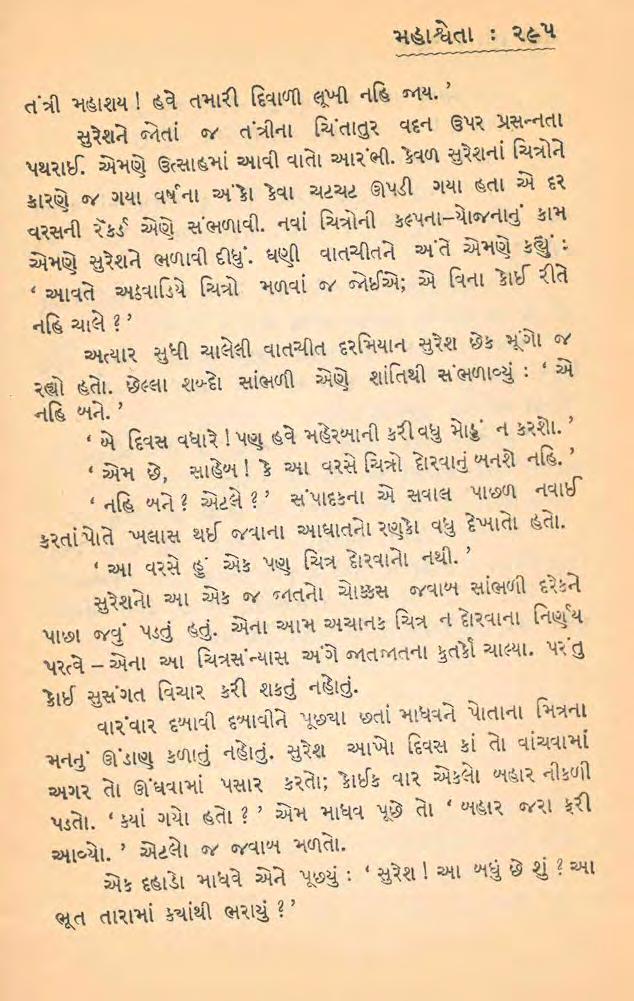 મહાશ્વેતા : ૨૯૫
તંત્રી મહાશય ! હવે તમારી દિવાળી લૂખી નહિ જાય. ’
સુરેશને જોતાં જ તંત્રીના ચિંતાતુર વદન ઉપર પ્રસન્નતા
પથરાઈ. એમણે ઉત્સાહમાં આવી વાતો આરંભી. કેવળ સુરેશનાં ચિત્રોને
કારણે જ ગયા વર્ષના અંકો કેવા ચટચટ ઊપડી ગયા હતા એ દર
વરસની રેકર્ડ એણે સંભળાવી. નવાં ચિત્રોની કલ્પના–યોજનાનું કામ
એમણે સુરેશને ભળાવી દીધું. ઘણી વાતચીતને અંતે એમણે કહ્યું :
‘ આવતે અઠવાડિયે ચિત્રો મળવાં જ જોઈએ; એ વિના કોઈ રીતે
નહિ ચાલે ? ’
અત્યાર સુધી ચાલેલી વાતચીત દરમિયાન સુરેશ છેક મૂંગો જ
રહ્યો હતો. છેલ્લા શબ્દો સાંભળી એણે શાંતિથી સંભળાવ્યું : ‘ એ
નહિ બને. ’
‘ બે દિવસ વધારે ! પણ હવે મહેરબાની કરી વધુ મોડું ન કરશો. ’
‘ એમ છે, સાહેબ ! કે આ વરસે ચિત્રો દોરવાનું બનશે નહિ. ’
‘ નહિ બને ? એટલે ? ’ સંપાદકના એ સવાલ પાછળ નવાઈ
કરતાં પોતે ખલાસ થઈ જવાના આઘાતનો રણકો વધુ દેખાતો હતો.
‘ આ વરસે હું એક પણ ચિત્ર દોરવાનો નથી. ’
સુરેશનો આ એક જ જાતનો ચોક્કસ જવાબ સાંભળી દરેકને
પાછા જવું પડતું હતું. એના આમ અચાનક ચિત્ર ન દોરવાના નિર્ણય
પરત્વે – એના આ ચિત્રસંન્યાસ અંગે જાતજાતના કુતર્કો ચાલ્યા. પરંતુ
કોઈ સુસંગત વિચાર કરી શકતું નહોતું.
વારંવાર દબાવી દબાવીને પૂછવા છતાં માધવને પોતાના મિત્રના
મનનું ઊંડાણ કળાતું નહોતું. સુરેશ આખો દિવસ કાં તો વાંચવામાં
અગર તો ઊંઘવામાં પસાર કરતો; કોઈક વાર એકલો બહાર નીકળી
પડતો. ‘ ક્યાં ગયો હતો ? ’ એમ માધવ પૂછે તો ‘ બહાર જરા ફરી
આવ્યો. ’ એટલો જ જવાબ મળતો.
એક દહાડો માધવે એને પૂછયું : ‘ સુરેશ ! આ બધું છે શું ? આ
ભૂત તારામાં ક્યાંથી ભરાયું ? ’